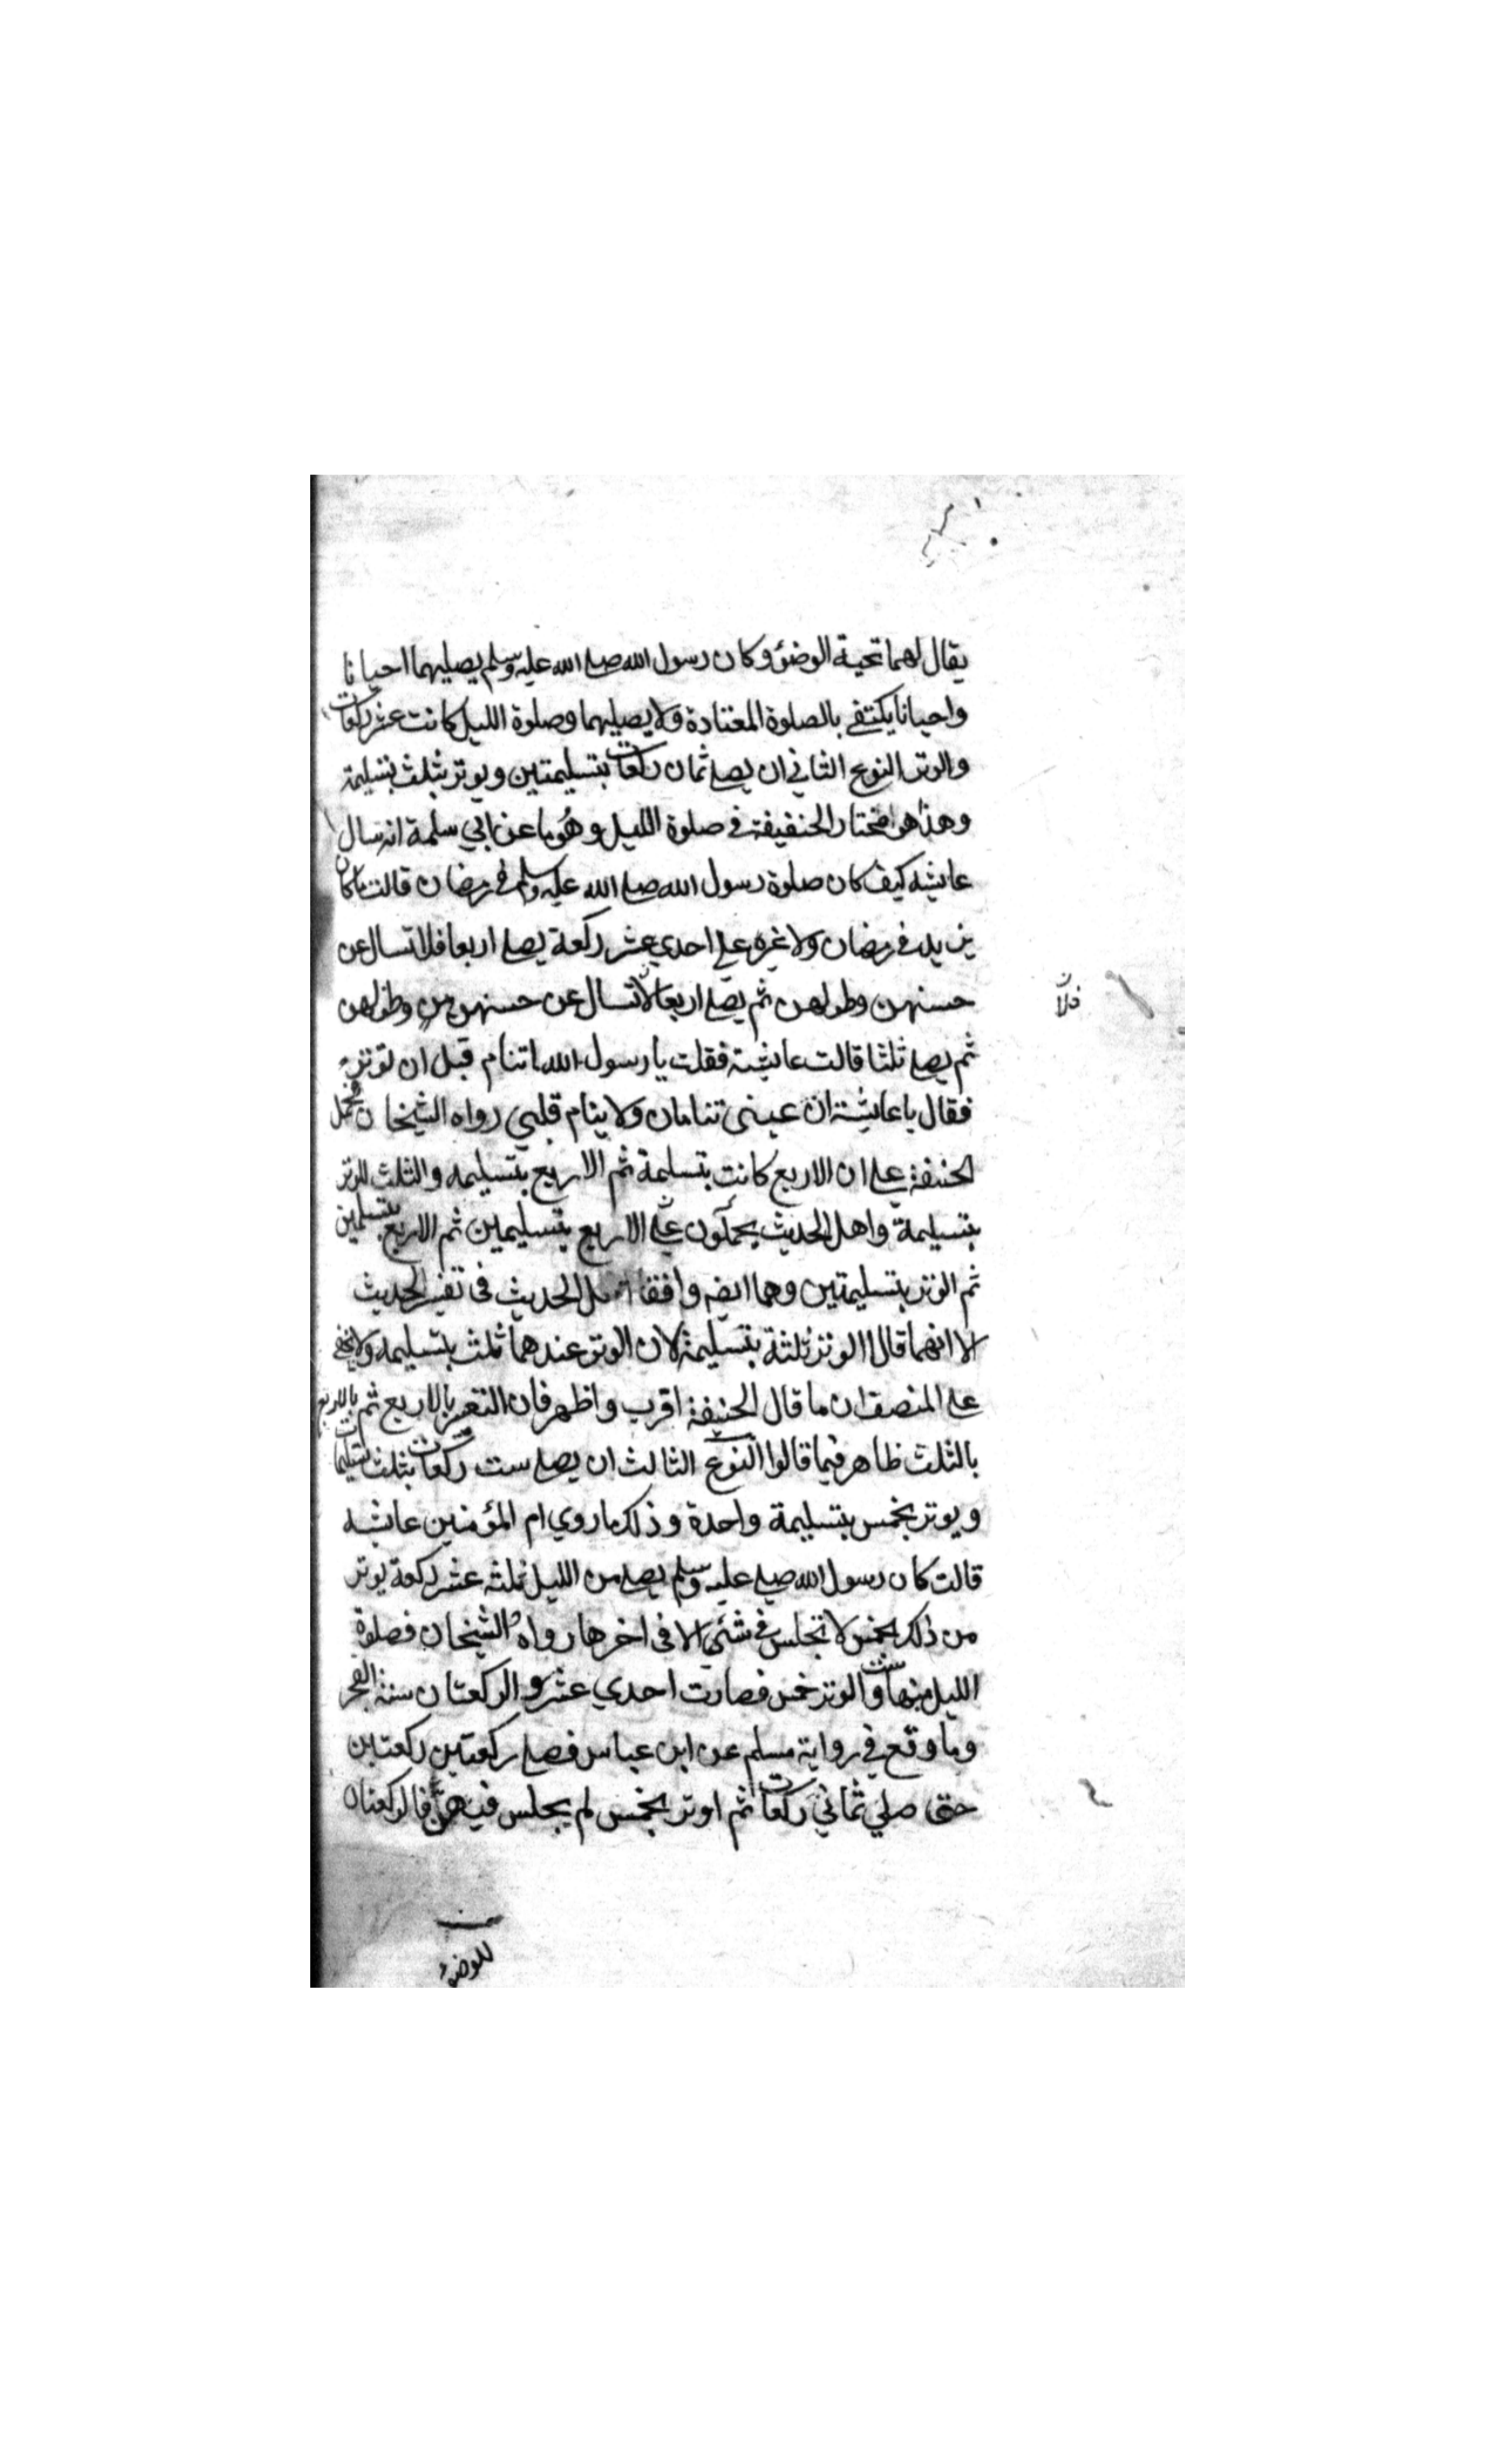 يقال لهما تحية الوضؤ وكان رسول الله صلى الله عليه وسلم يصليهما احيانا
واحيانا يكتفي بالصلوة المعتادة ولا يصليهما وصلوة الليل كانت عشر ركعات
والوتر النوع الثاني ان يصلي ثمان ركعات بتسليمتين ويوتر بثلث بتسليمة
وهذا هو مختار الحنفيفة في صلوة الليل وهو ما عن ابي سلمة انه سال
عايشه كيف كان صلوة رسول الله صلى الله عليه وسلم في رمضان قالت ما كان
يزيد في رمضان ولا غيره على احدي عشر ركعة يصلي اربعا فلا تسال عن
حسنهن وطولهن ثم يصلي اربعا لا تسال عن حسنهن وطولهن
فلا
ثم يصلي ثلثا قالت عايشة فقلت يا رسول الله اتنام قبل ان توتر
فقال يا عايشة ان عيني تنامان ولا ينام قلبي رواه الشيخان فحمل
الحنفة على ان الاربع كانت بتسلمة ثم الاربع بتسليمه والثلث الوتر
بتسيلمة واهل الحديث يحملون على الاربع بتسليمين ثم الاربع بتسلمين
ثم الوتر بتسليمتين وهما ايضه وافقا اهل الحديث في تفسير الحديث
الا انهما قالا الوتر ثلثة بتسليمة لان الوتر عندهما ثلث بتسليمه ولا يخفي
على المنصف ان ما قال الحنيفة اقرب واظهر فان التعبير بالاربع ثم بالاربع
بالثلث ظاهر فيما قالوا النوع الثالث ان يصلي ست ركعات بثلث تسليمات
ويوتر بخمس بتسليمة واحدة وذلك ما روي ام المؤمنين عايشه
قالت كان رسول الله صلى عليه وسلم يصلي من الليل ثلثه عشر ركعة يوتر
من ذلك بخمس لا تجلس في شئ الا في اخرها رواه الشيخان فصلوة
الليل منها ست والوتر خمس فصارت احدي عشر و الركعتان سنة الفجر
وما وقع في رواية مسلم عن ابن عباس فصلى ركعتين ركعتين
حتى صلي ثماني ركعات ثم اوتر بخمس لم يجلس فيهن فالركعتان
للوضوء